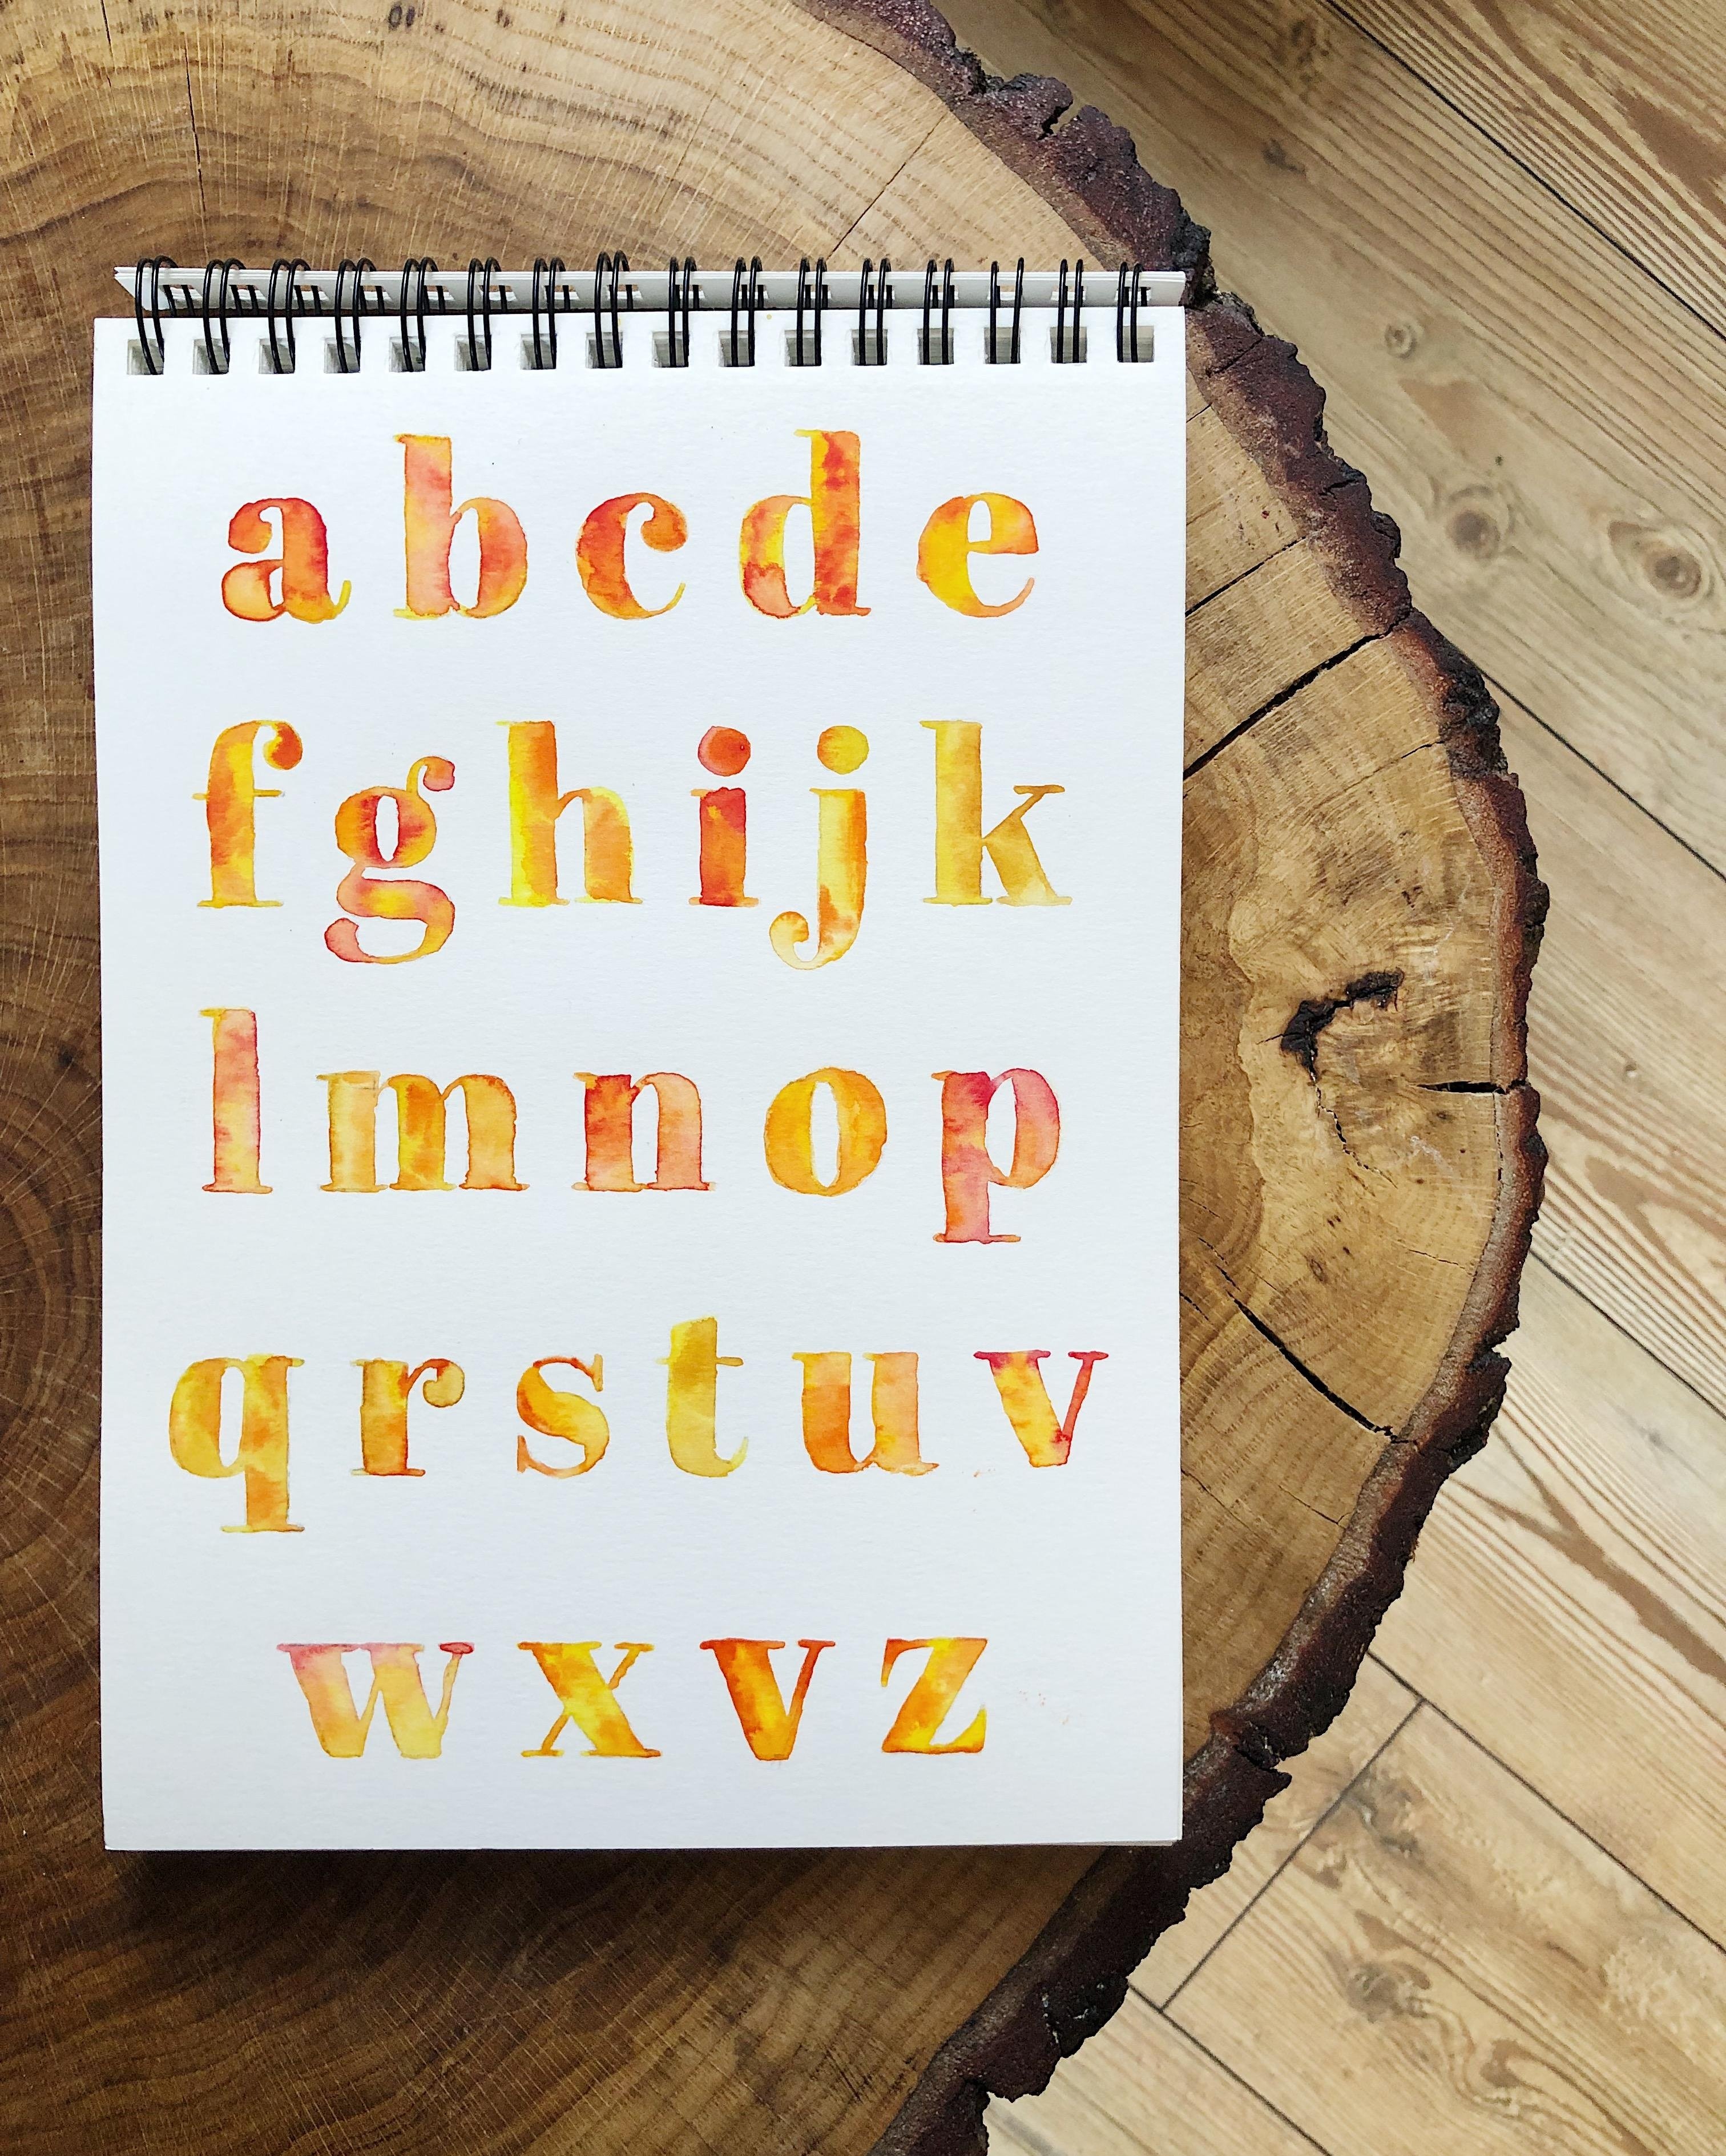 abcde
fghijk
lmnop
qrstuv
wxvz